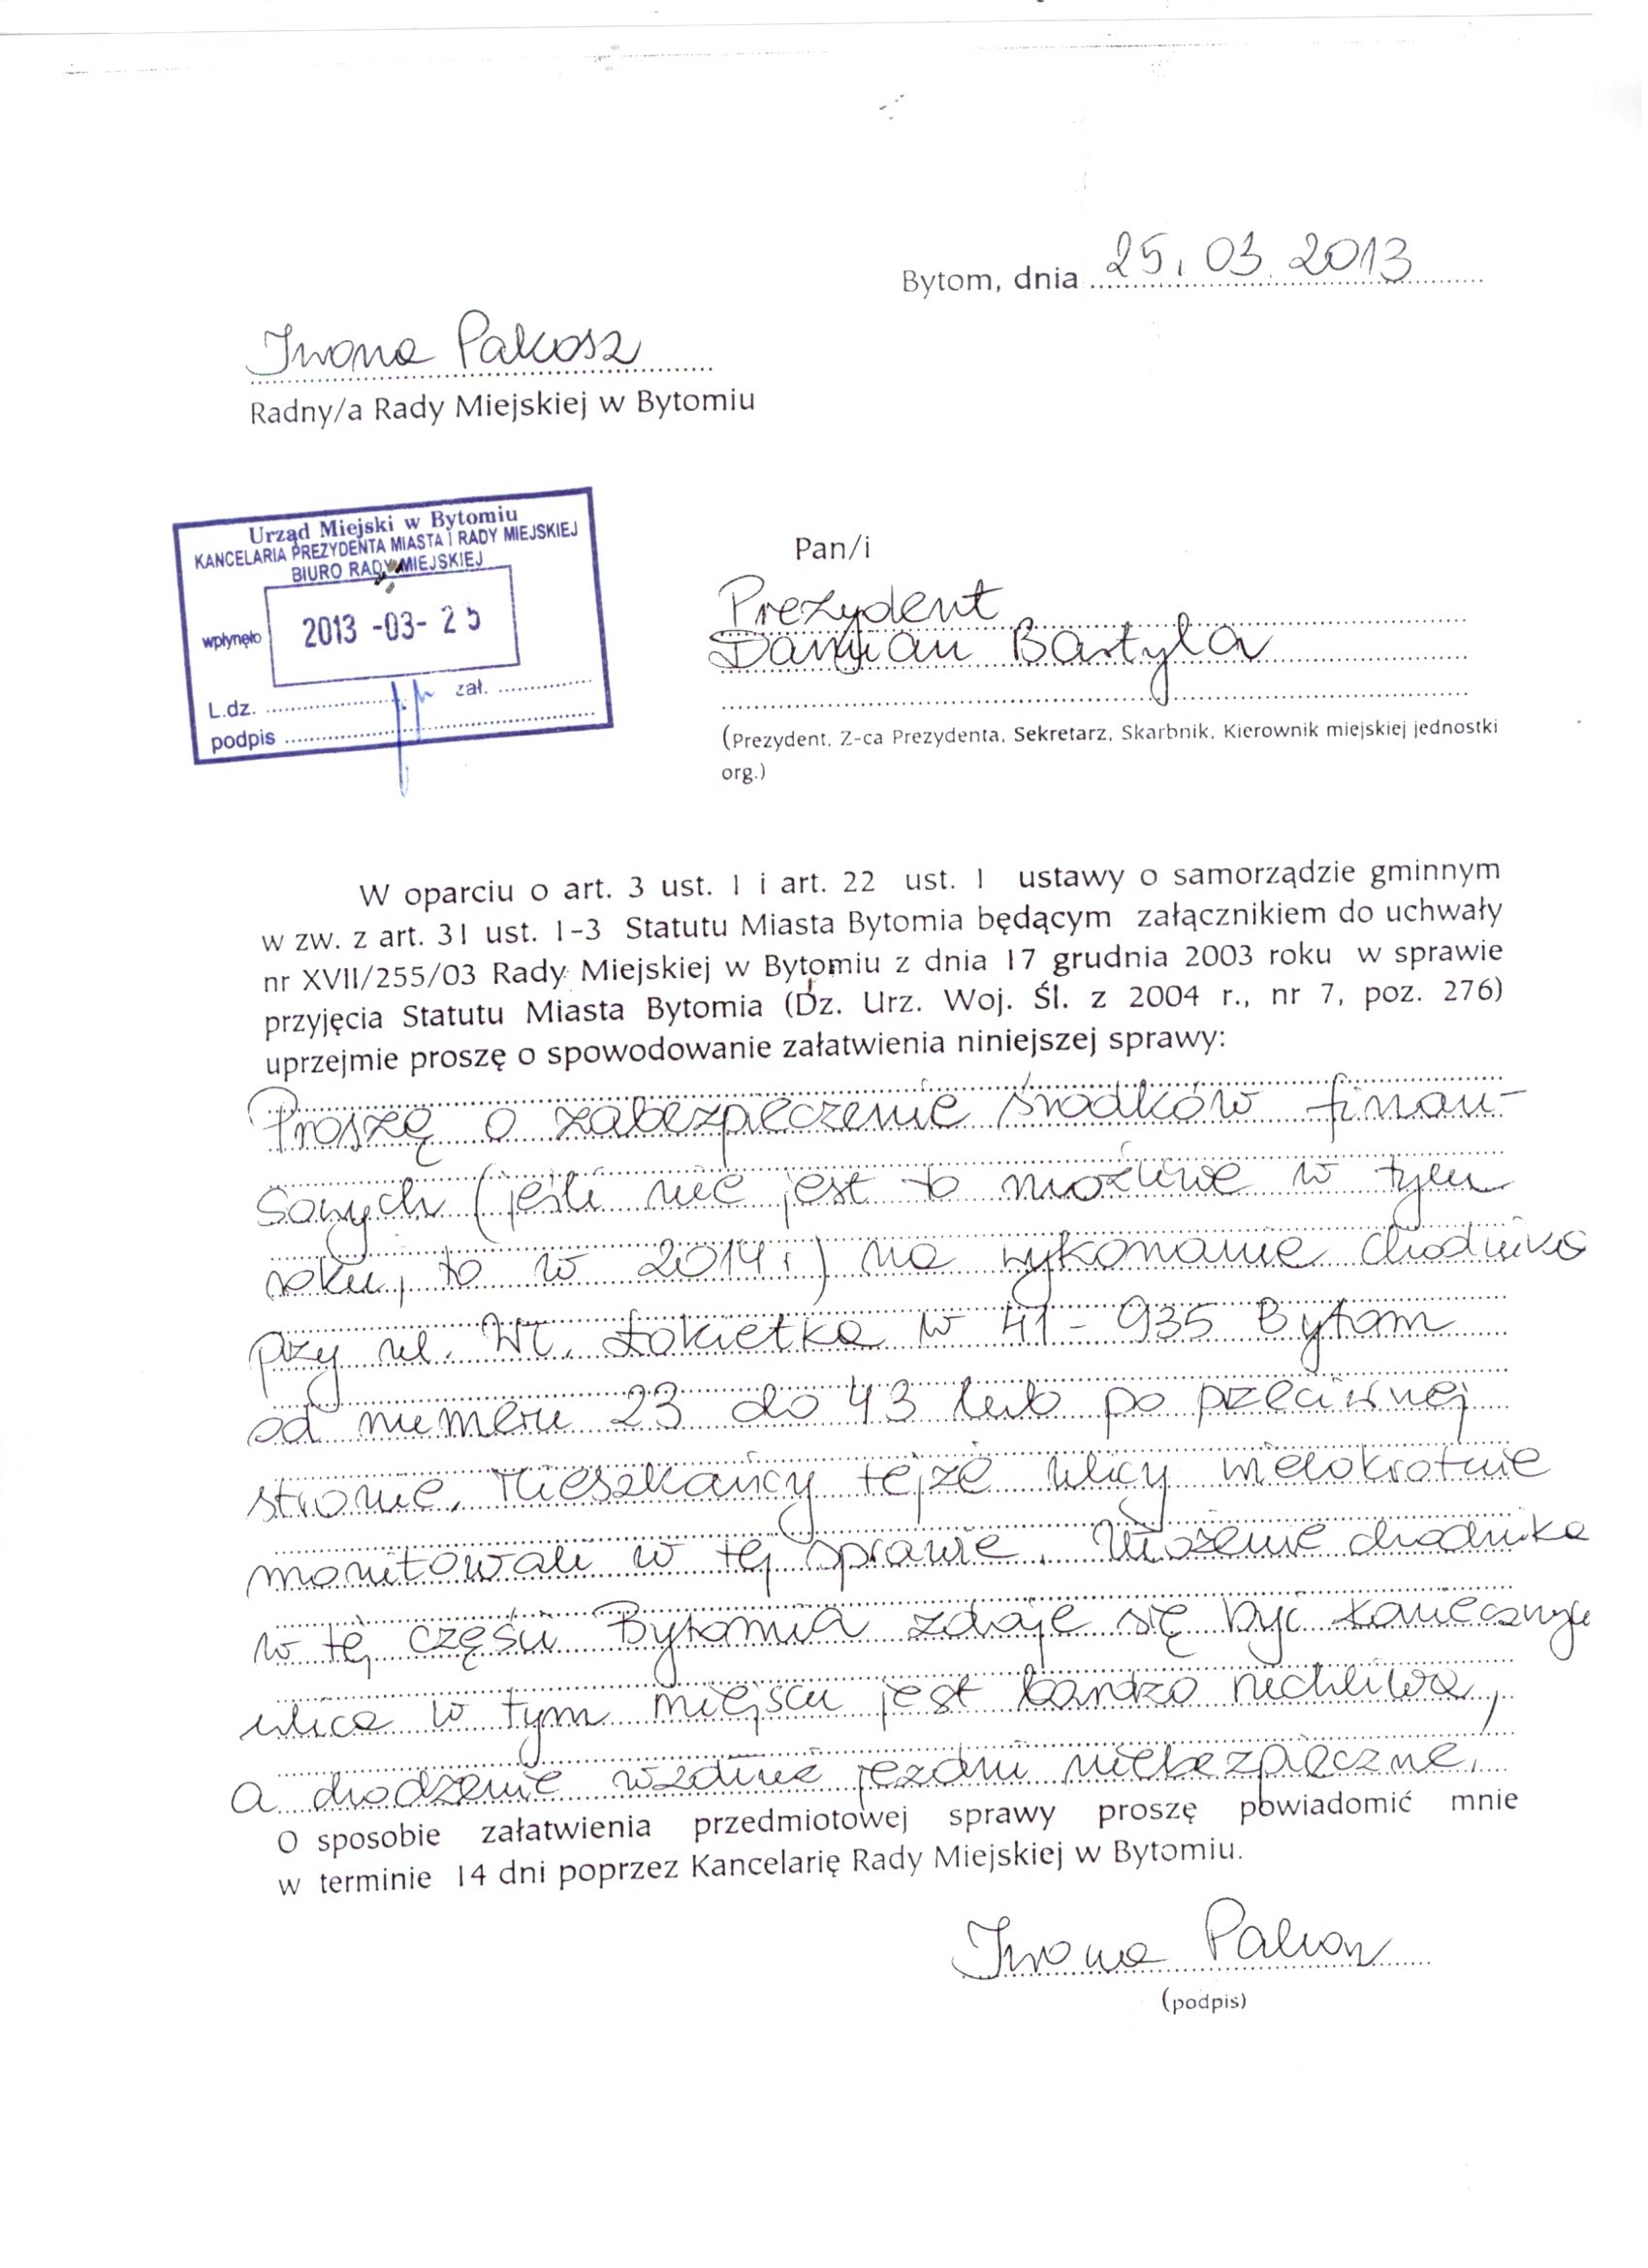 Bytom, dnia 25.03.2013
Iwona Pakosz
Radny/a Rady Miejskiej w Bytomiu
Urząd Miejski w Bytomiu
KANCELARIA PREZYDENTA MIASTA I RADY MIEJSKIEJ
BIURO RADY MIEJSKIEJ
wpłynęło 2013 -03- 25
L.dz. zał.
podpis
Pan/i
Prezydent
Damian Bartyla
(Prezydent, Z-ca Prezydenta, Sekretarz, Skarbnik, Kierownik miejskiej jednostki
org.)
W oparciu o art. 3 ust. 1 i art. 22 ust. 1 ustawy o samorządzie gminnym
w zw. z art. 31 ust. 1-3 Statutu Miasta Bytomia będącym załącznikiem do uchwały
nr XVII/255/03 Rady Miejskiej w Bytomiu z dnia 17 grudnia 2003 roku w sprawie
przyjęcia Statutu Miasta Bytomia (Dz. Urz. Woj. Śl. z 2004 r., nr 7, poz. 276)
uprzejmie proszę o spowodowanie załatwienia niniejszej sprawy:
Proszę o zabezpieczenie środków finan-
sowych (jeśli nie jest to możliwe w tym
roku, to w 2014r) na wykonanie chodnika
przy ul. Wł. Łokietka w 41-935 Bytom
od numeru 23 do 43 lub po przeciwnej
stronie. Mieszkańcy tejże ulicy wielokrotnie
monitowali w tej sprawie. Ułożenie chodnika
w tej części Bytomia zdaje się być konieczny
ulica w tym miejscu jest bardzo ruchliwa,
a chodzenie wzdłuż jezdni niebezpieczne.
O sposobie załatwienia przedmiotowej sprawy proszę powiadomić mnie
w terminie 14 dni poprzez Kancelarię Rady Miejskiej w Bytomiu.
Iwona Pakosz
(podpis)